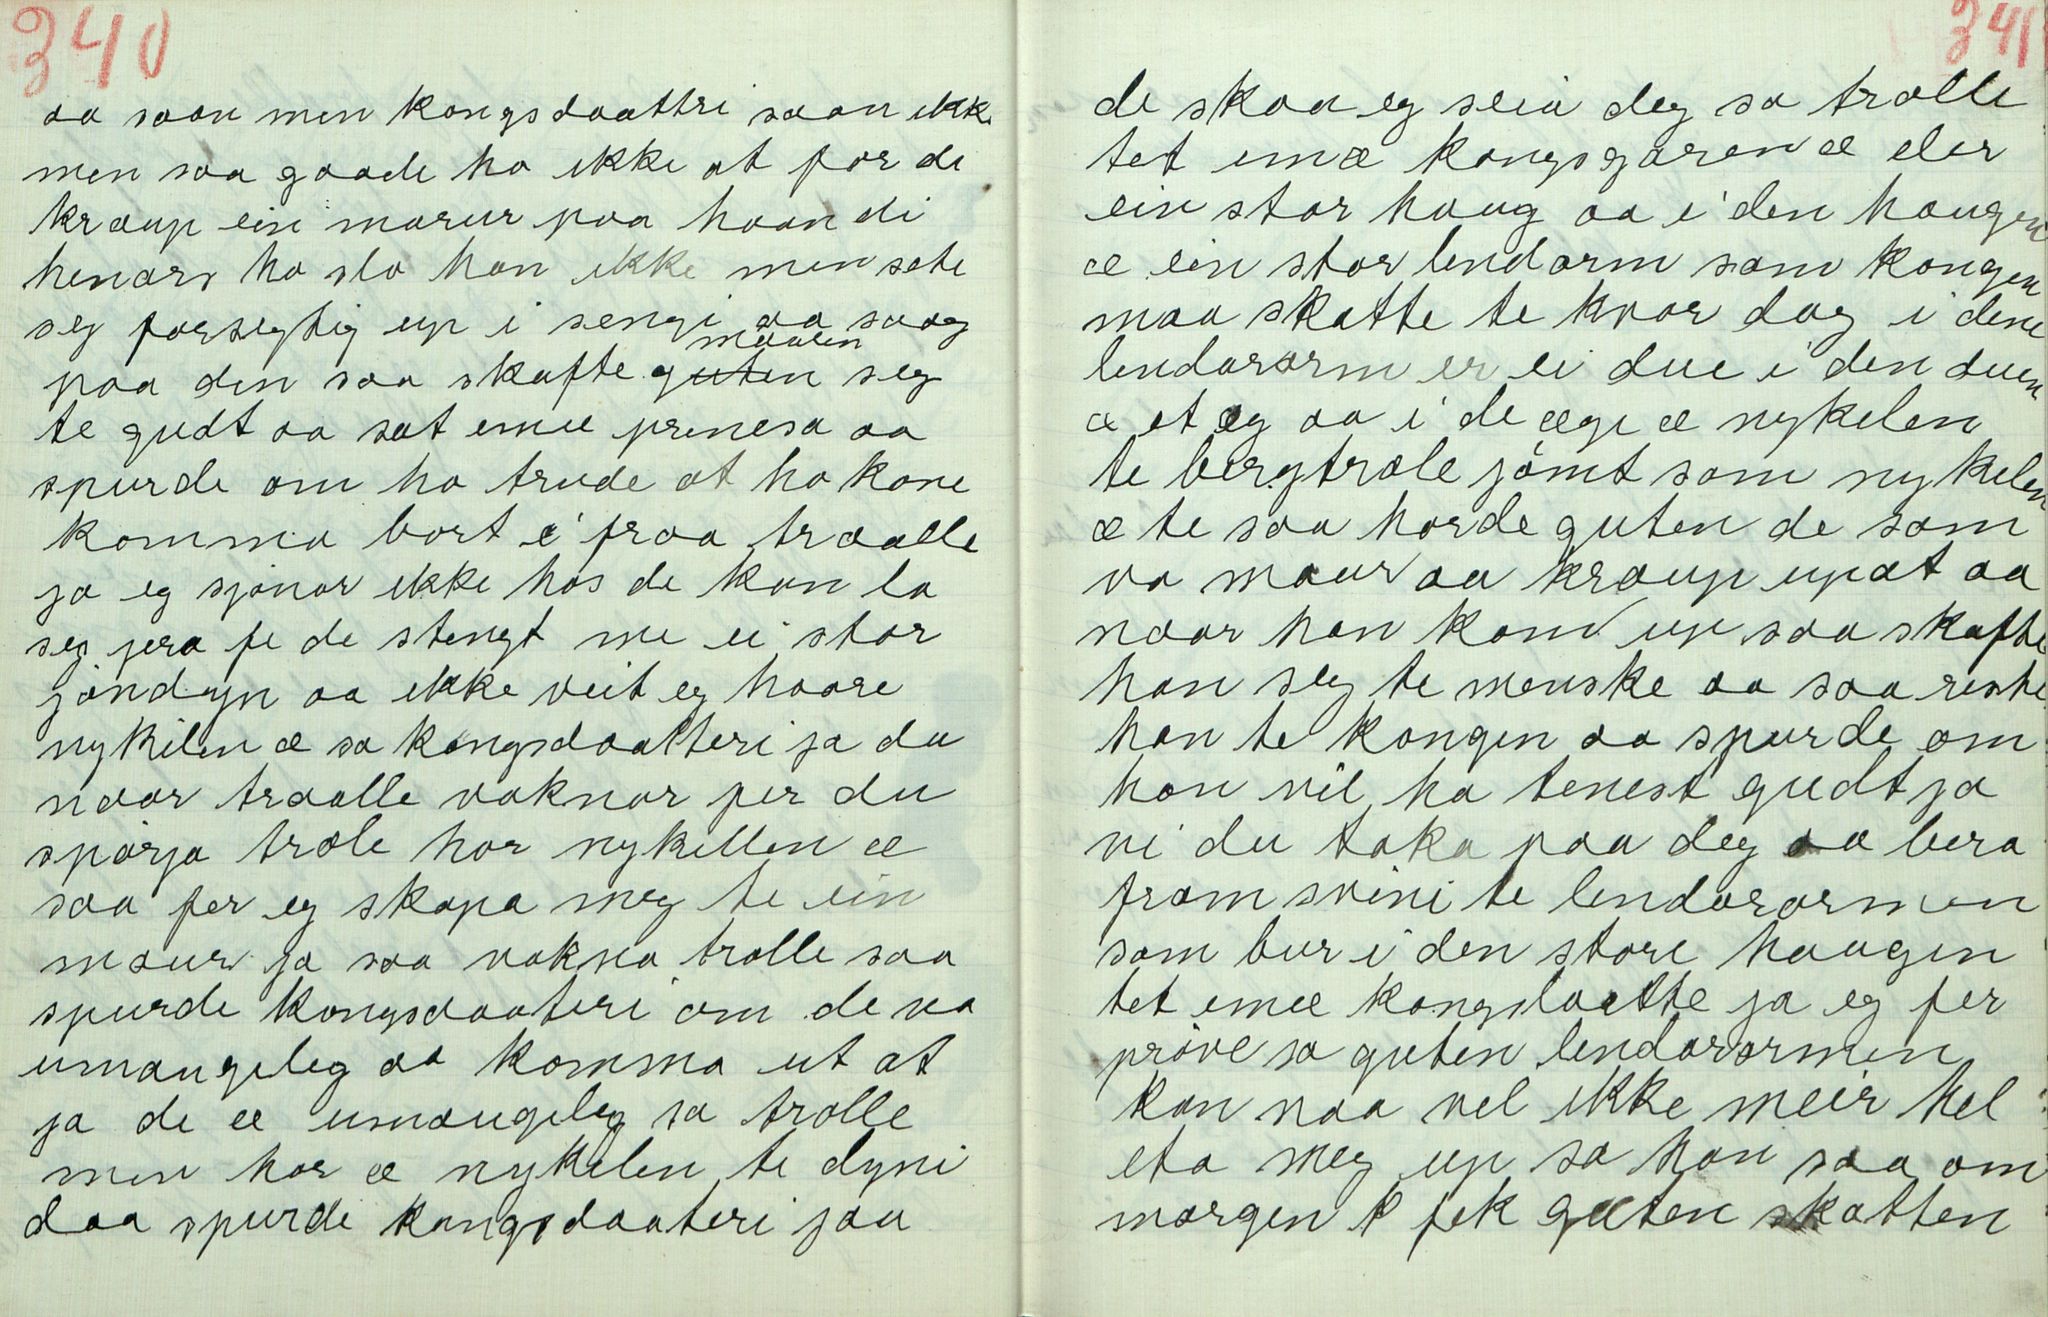 340
aa saav men kongsdaattri saav ikke
men saa gaade ho ikke at for de
kraup ein maur paa haandi
henars ho slo han ikke men sete
seg forsegtig up i sengi aa saag
paa den saa skafte maaren seg
te gudt aa sat emæ prinesa aa
spurde om ho trude at ho kone
komma bort i fraa traalle
ja eg sjönar ikke hos de kan la
seg jera fe de stengt me ei stor
jöndyn aa ikke veit eg haare
nykilen æ sa kongsdaatteri ja du
naar traalle vaknar fer du
spörja trole hor nykellen æ
saa fer eg skapa meg te ein
maur ja saa vakna trolle saa
spurde kongsdaateri om de va
umaugeleg aa komma ut at
ja de æ umaugeleg sa trolle
men hor æ nykelen te dyni
daa spurde kongsdaateri jau
341
de skaa eg seia deg sa trolle
tet emæ kongsgaren æ eler
ein stor haug aa i den haugen
æ ein stor lendorm som kongen
maa skatte te kvar dag i dene
lendarorm er ei due i den duen
æ et eg aa i de ægi æ nykelen
te bergtrole jömt som nykelen
æ te saa horde guten de som
va maur aa kraup upat aa
naar han kom up saa skafte
han seg te menske aa saa reiste
han te kongen aa spurde om
han vil ha tenest gudt ja
vi du taka paa deg aa bera
fram svini te lendarormen
som bur i den store haugen
tet emæ kongslaatte ja eg fer
pröve sa guten lendarormen
kan naa vel ikke meir hel
eta meg up sa han saa om
morgen fek guten skatten